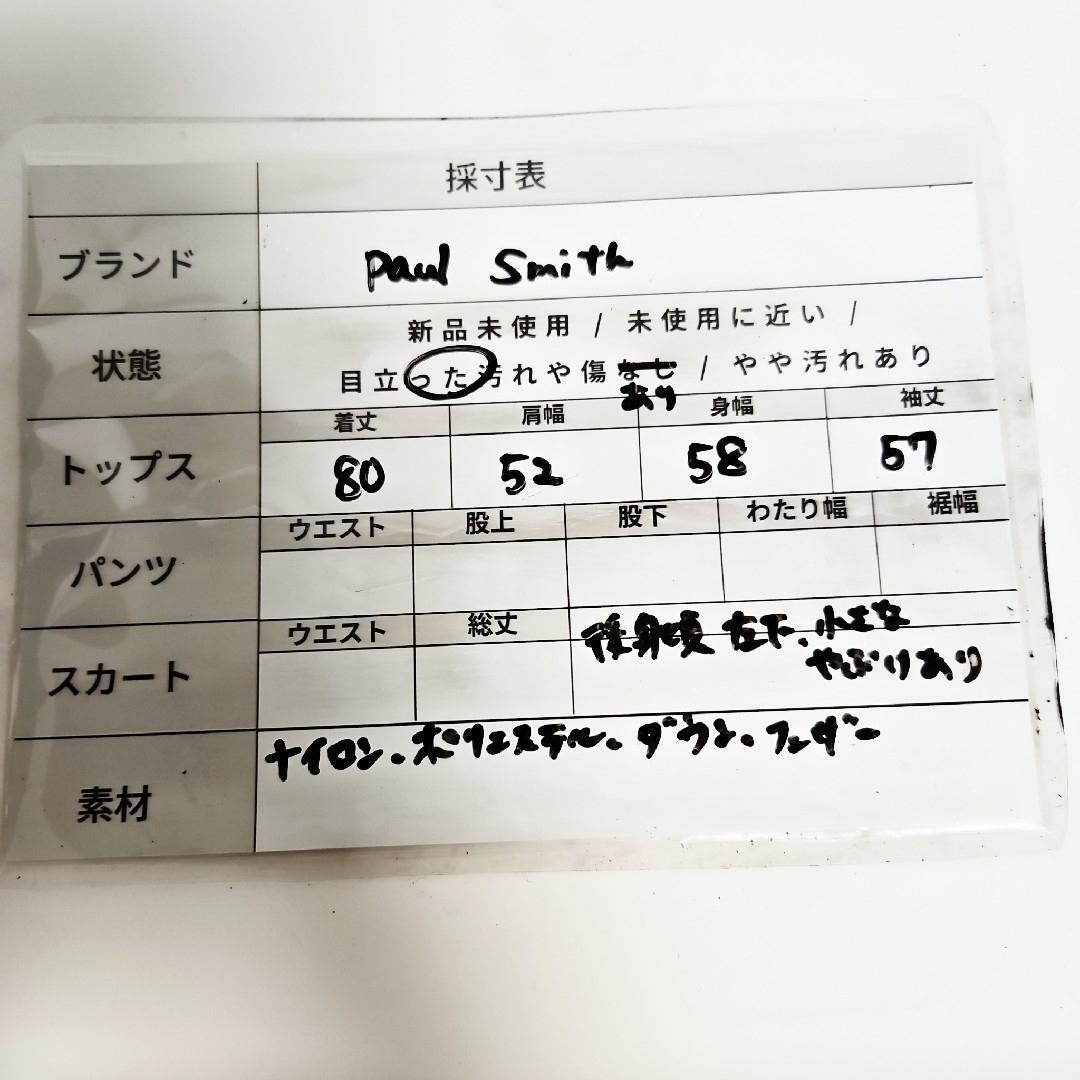 採寸表
ブランド
Paul Smith
状態
新品未使用 / 未使用に近い /
目立った汚れや傷なし / やや汚れあり
あり
トップス
着丈 肩幅 身幅 袖丈
80 52 58 57
パンツ
ウエスト 股上 股下 わたり幅 裾幅
スカート
ウエスト 総丈
後身頃 左下、小さな
やぶけあり
素材
ナイロン、ポリエステル、ダウン、フェザー